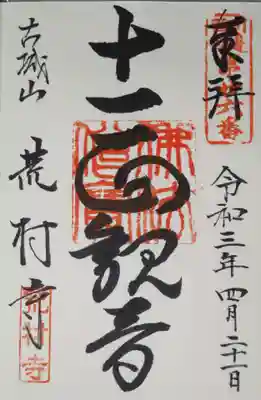 奉拝
令和三年四月二十一日
十一面観音
古城山
荒村寺